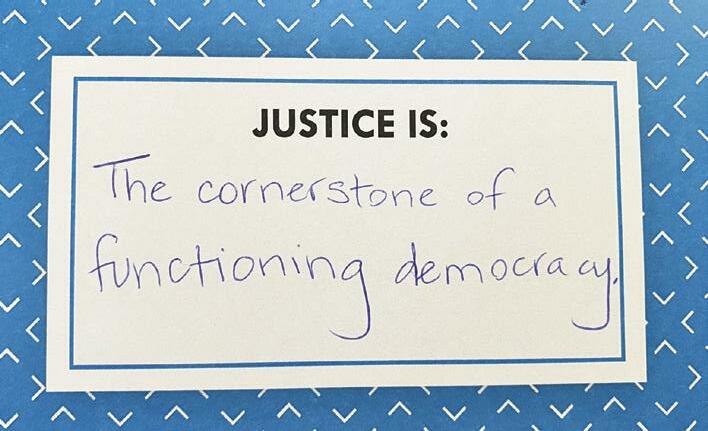 JUSTICE IS:
The cornerstone of a
functioning democracy.